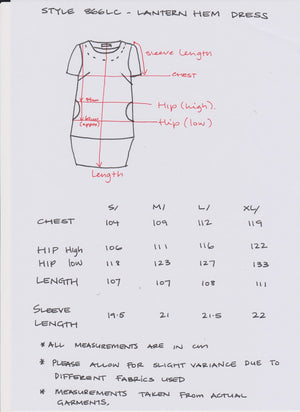 STYLE 866LC - LANTERN HEM DRESS
SLEEVE LENGTH
CHEST
HIP (high).
HIP (low)
Length
S/ M/ L/ XL/
CHEST 104 109 112 119
HIP High 106 111 116 122
HIP low 118 123 127 133
LENGTH 107 107 108 111
SLEEVE
LENGTH 19.5 21 21.5 22
* ALL MEASUREMENTS ARE IN cm
* PLEASE ALLOW FOR SLIGHT VARIANCE DUE TO
DIFFERENT FABRICS USED
* MEASUREMENTS TAKEN FROM ACTUAL
GARMENTS,